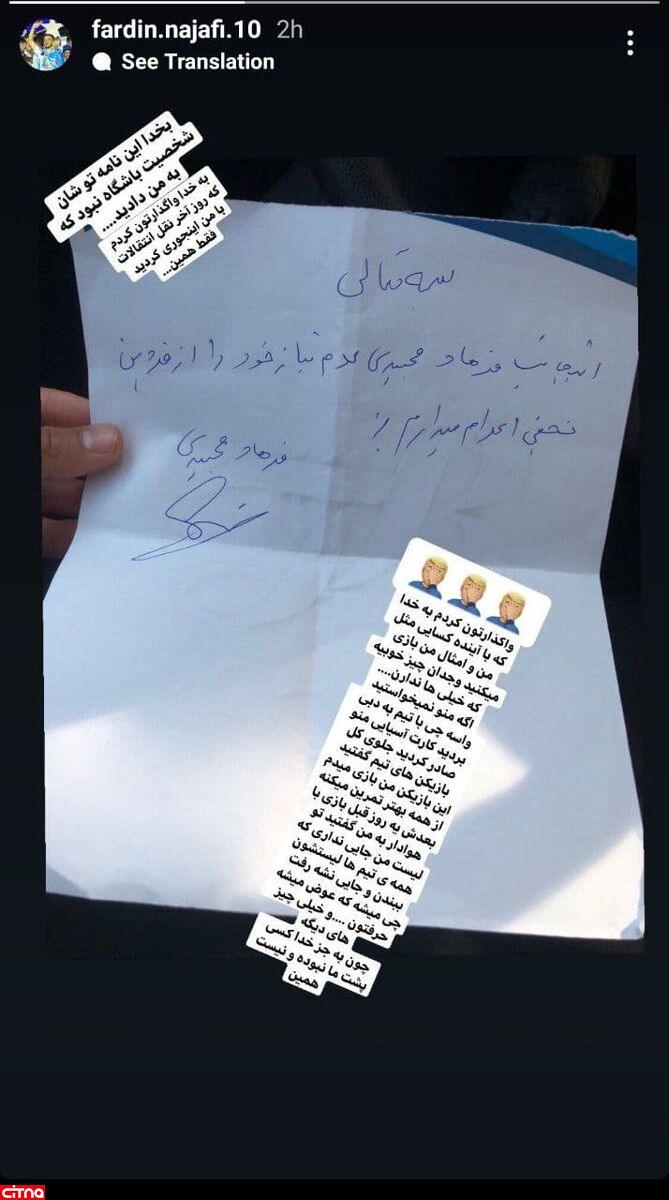 fardin.najafi.10 2h
See Translation
بخدا این نامه تو شان
شخصیت باشگاه نبود که
به من دادید....
به خدا واگذارتون کردم
که روز آخر نقل انتقالات
با من اینجوری کردید
فقط همین...
بسمه تعالی
اینجانب فرهاد مجیدی عدم نیاز خود را از فردین
نجفی اعلام میدارم
فرهاد مجیدی
واگذارتون کردم به خدا
که با آینده کسایی مثل
من و امثال من بازی
میکنید وجدان چیز خوبیه
که خیلی ها ندارن....
اگه منو نمیخواستید
واسه چی با تیم به دبی
بردید کارت آسیایی منو
صادر کردید جلوی کل
بازیکن های تیم گفتید
این بازیکن من بازی میدم
از همه بهتر تمرین میکنه
بعدش یه روز قبل بازی با
هوادار به من گفتید تو
لیست من جایی نداری که
همه ی تیم ها لیستشون
ببندن و جایی نشه رفت
چی میشه که عوض میشه
حرفتون ....و خیلی چیز
های دیگه
چون به جز خدا کسی
پشت ما نبوده و نیست
همین
citna